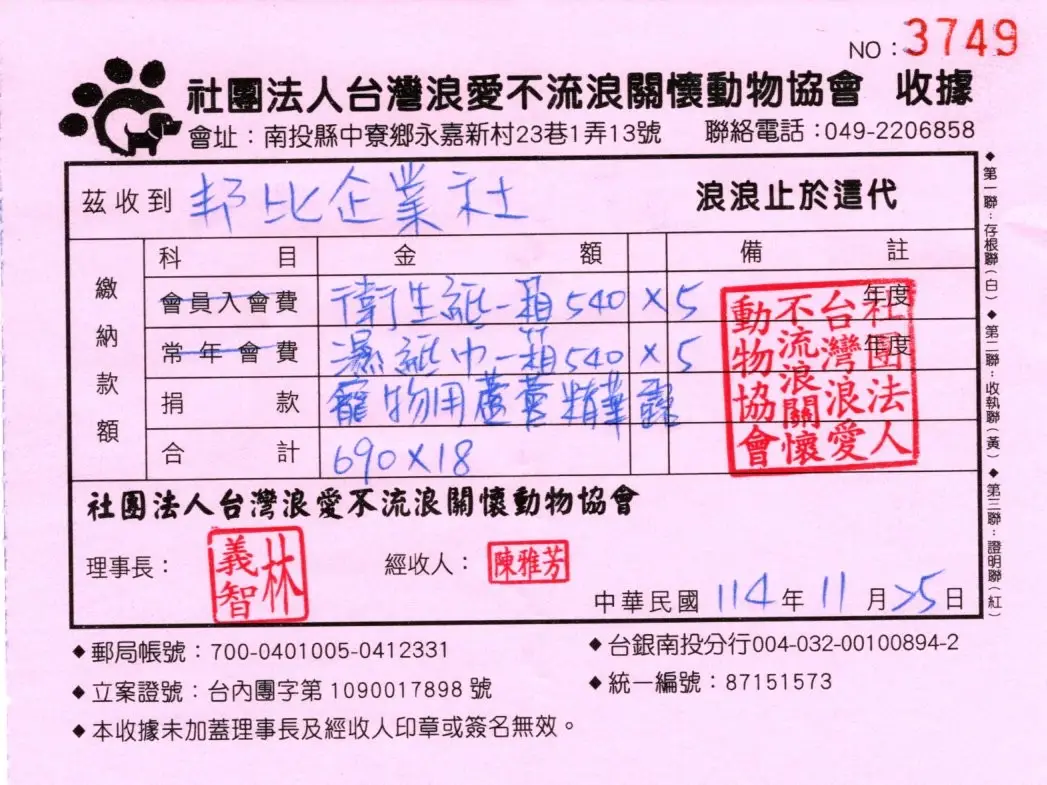 NO：3749
社團法人台灣浪愛不流浪關懷動物協會 收據
會址：南投縣中寮鄉永嘉新村23巷1弄13號 聯絡電話：049-2206858
茲收到 邦比企業社 浪浪止於這代
繳納款額
科目 金額 備註
會員入會費 衛生紙一箱540×5 年度
常年會費 濕紙巾一箱540×5 年度
捐款 寵物用蘆薈精華露
合計 690×18
社團法人台灣浪愛不流浪關懷動物協會
社團法人台灣浪愛不流浪關懷動物協會
理事長：林義智 經收人：陳雅芳
中華民國114年11月25日
◆郵局帳號：700-0401005-0412331 ◆台銀南投分行004-032-00100894-2
◆立案證號：台內團字第1090017898號 ◆統一編號：87151573
◆本收據未加蓋理事長及經收人印章或簽名無效。
◆第一聯：存根聯(白)◆第二聯：收執聯(黃)◆第三聯：證明聯(紅)